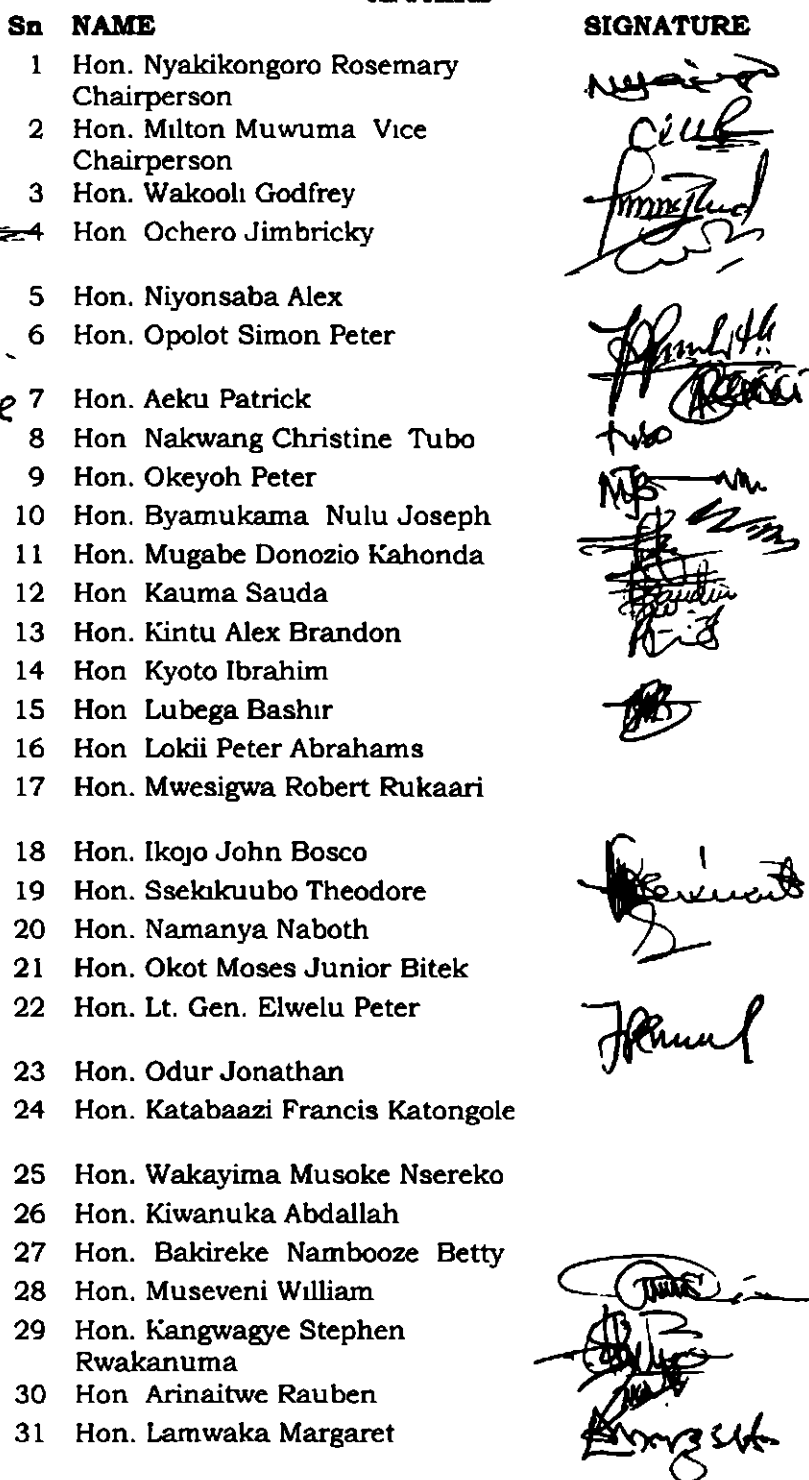 Sn NAME SIGNATURE
1 Hon. Nyakikongoro Rosemary
Chairperson
2 Hon. Milton Muwuma Vice
Chairperson
3 Hon. Wakooli Godfrey
4 Hon Ochero Jimbricky
5 Hon. Niyonsaba Alex
6 Hon. Opolot Simon Peter
7 Hon. Aeku Patrick
8 Hon Nakwang Christine Tubo tubo
9 Hon. Okeyoh Peter
10 Hon. Byamukama Nulu Joseph
11 Hon. Mugabe Donozio Kahonda
12 Hon Kauma Sauda
13 Hon. Kintu Alex Brandon
14 Hon Kyoto Ibrahim
15 Hon Lubega Bashir
16 Hon Lokii Peter Abrahams
17 Hon. Mwesigwa Robert Rukaari
18 Hon. Ikojo John Bosco
19 Hon. Ssekikuubo Theodore
20 Hon. Namanya Naboth
21 Hon. Okot Moses Junior Bitek
22 Hon. Lt. Gen. Elwelu Peter
23 Hon. Odur Jonathan
24 Hon. Katabaazi Francis Katongole
25 Hon. Wakayima Musoke Nsereko
26 Hon. Kiwanuka Abdallah
27 Hon. Bakireke Nambooze Betty
28 Hon. Museveni William
29 Hon. Kangwagye Stephen
Rwakanuma
30 Hon Arinaitwe Rauben
31 Hon. Lamwaka Margaret